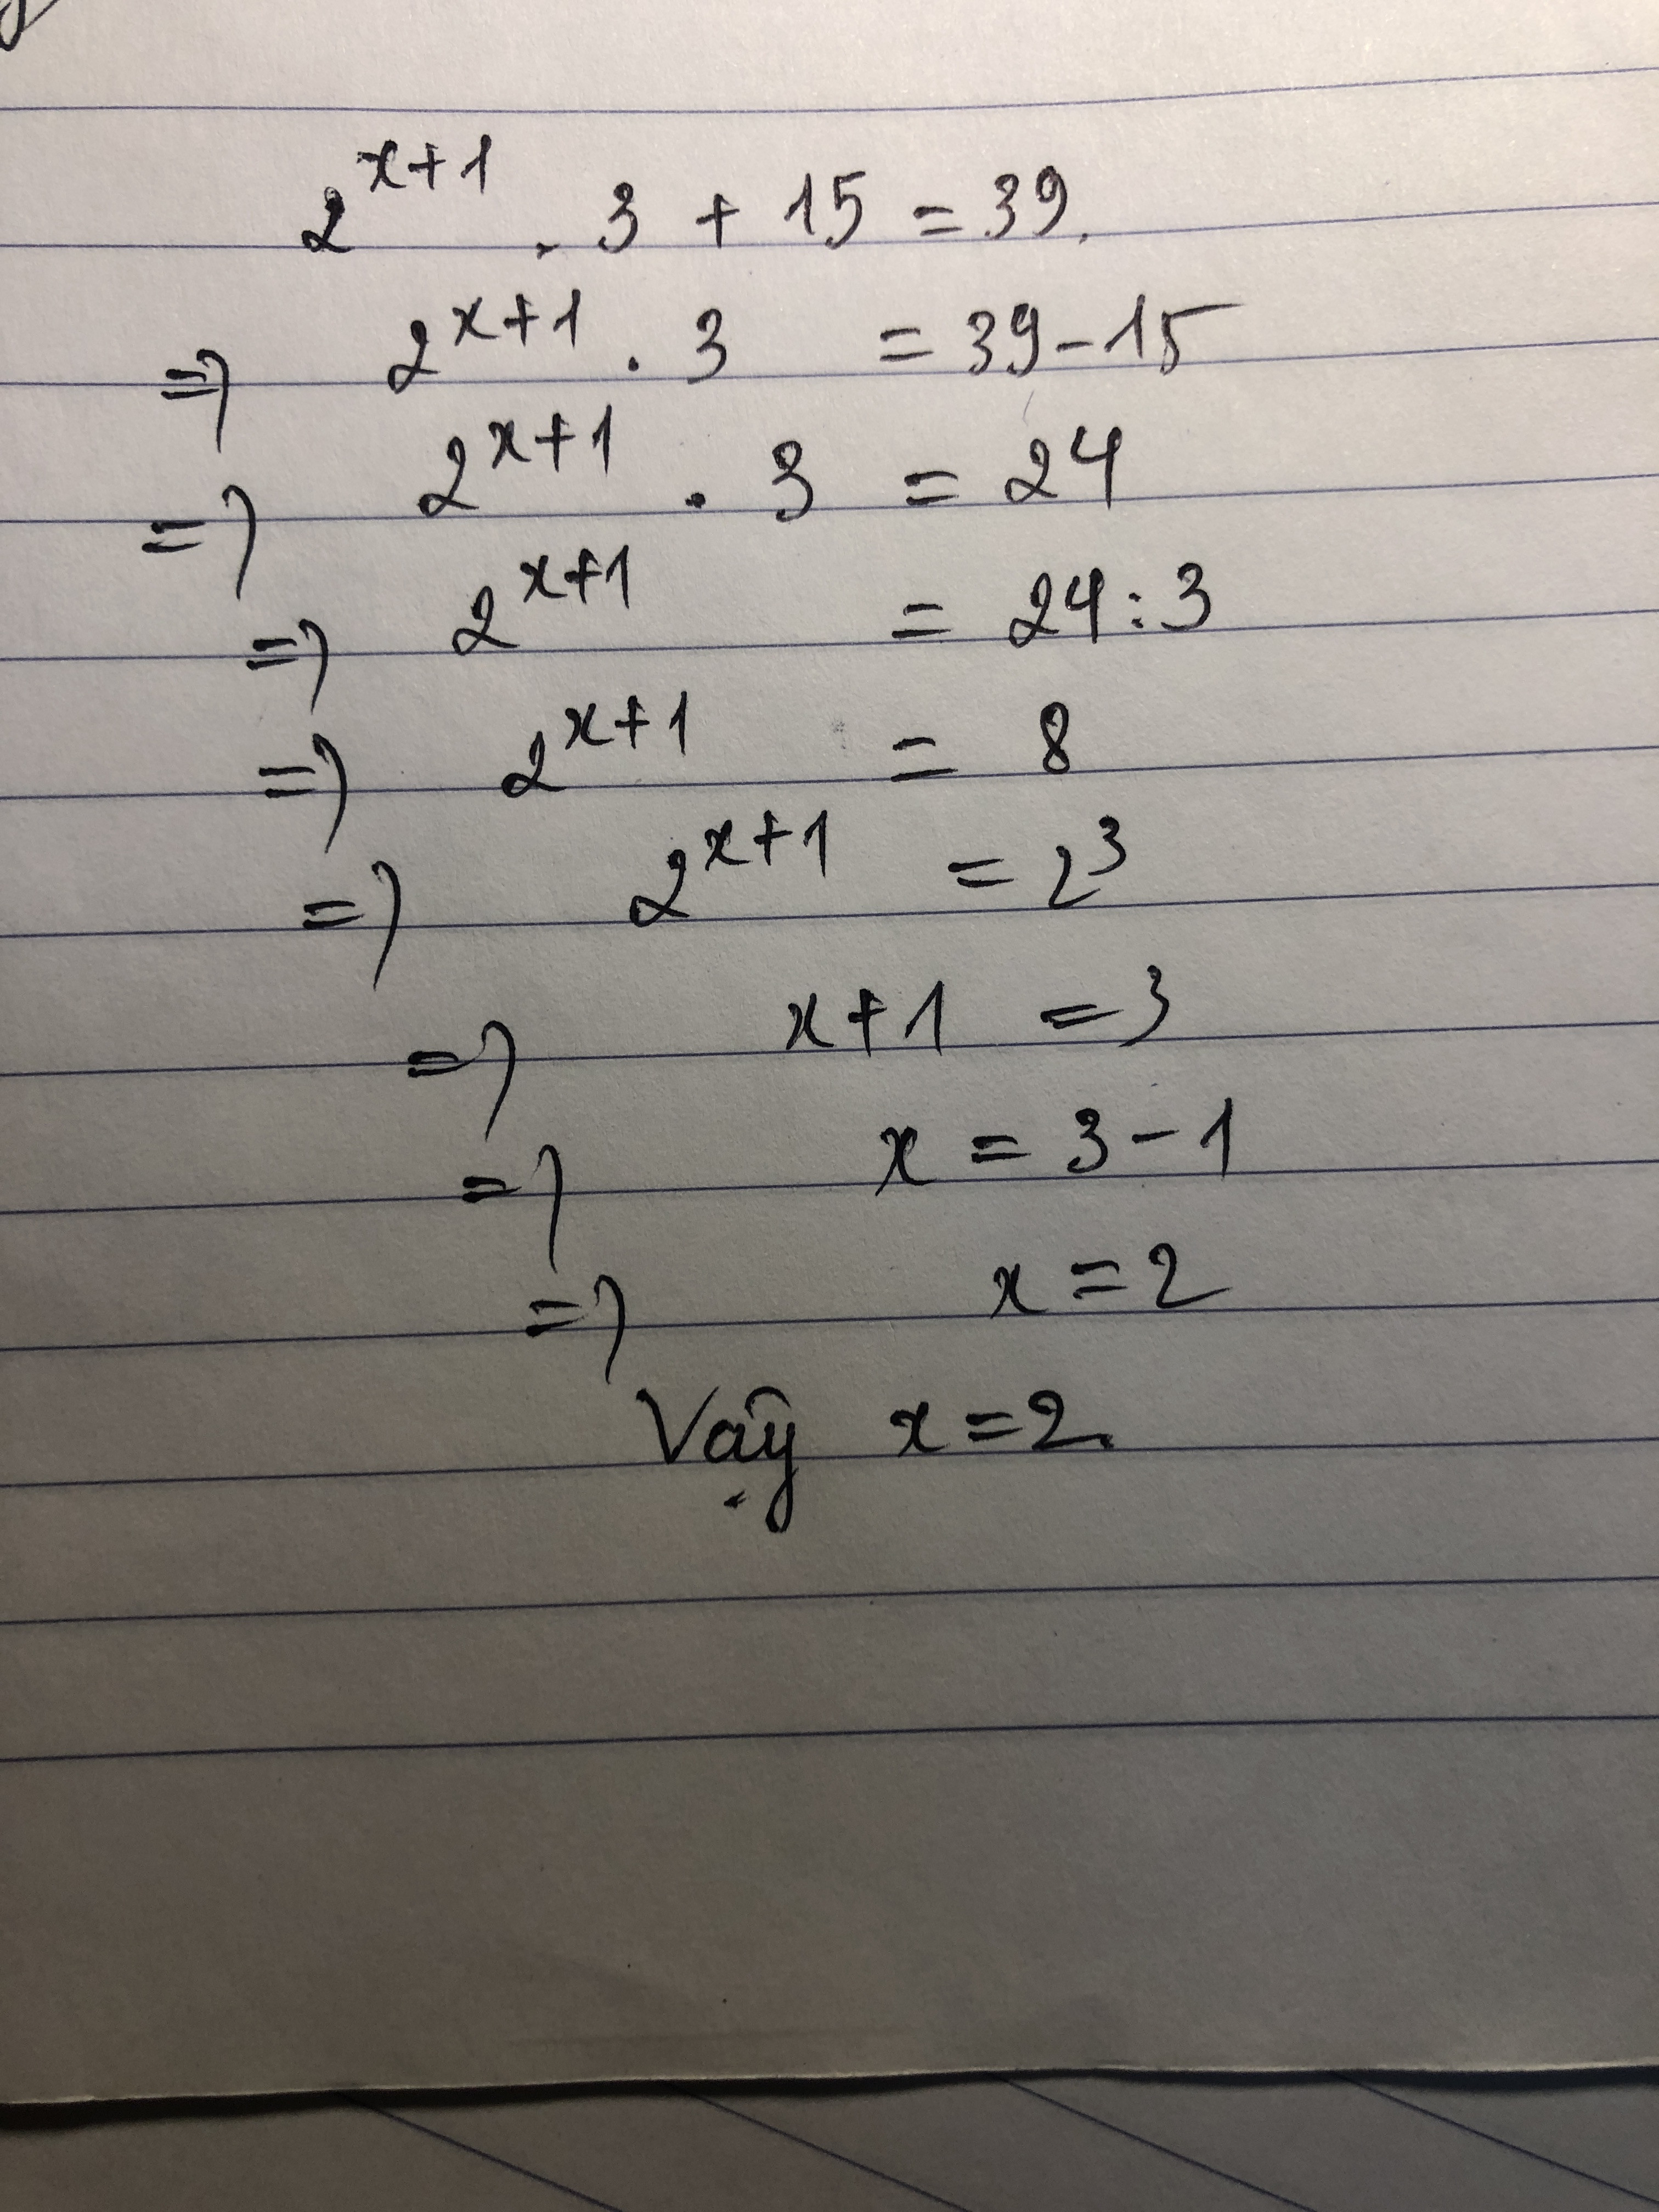 2^{x+1} . 3 + 15 = 39.
=> 2^{x+1} . 3 = 39 - 15
=> 2^{x+1} . 3 = 24
=> 2^{x+1} = 24 : 3
=> 2^{x+1} = 8
=> 2^{x+1} = 2^3
=> x + 1 = 3
=> x = 3 - 1
=> x = 2
Vậy x = 2.